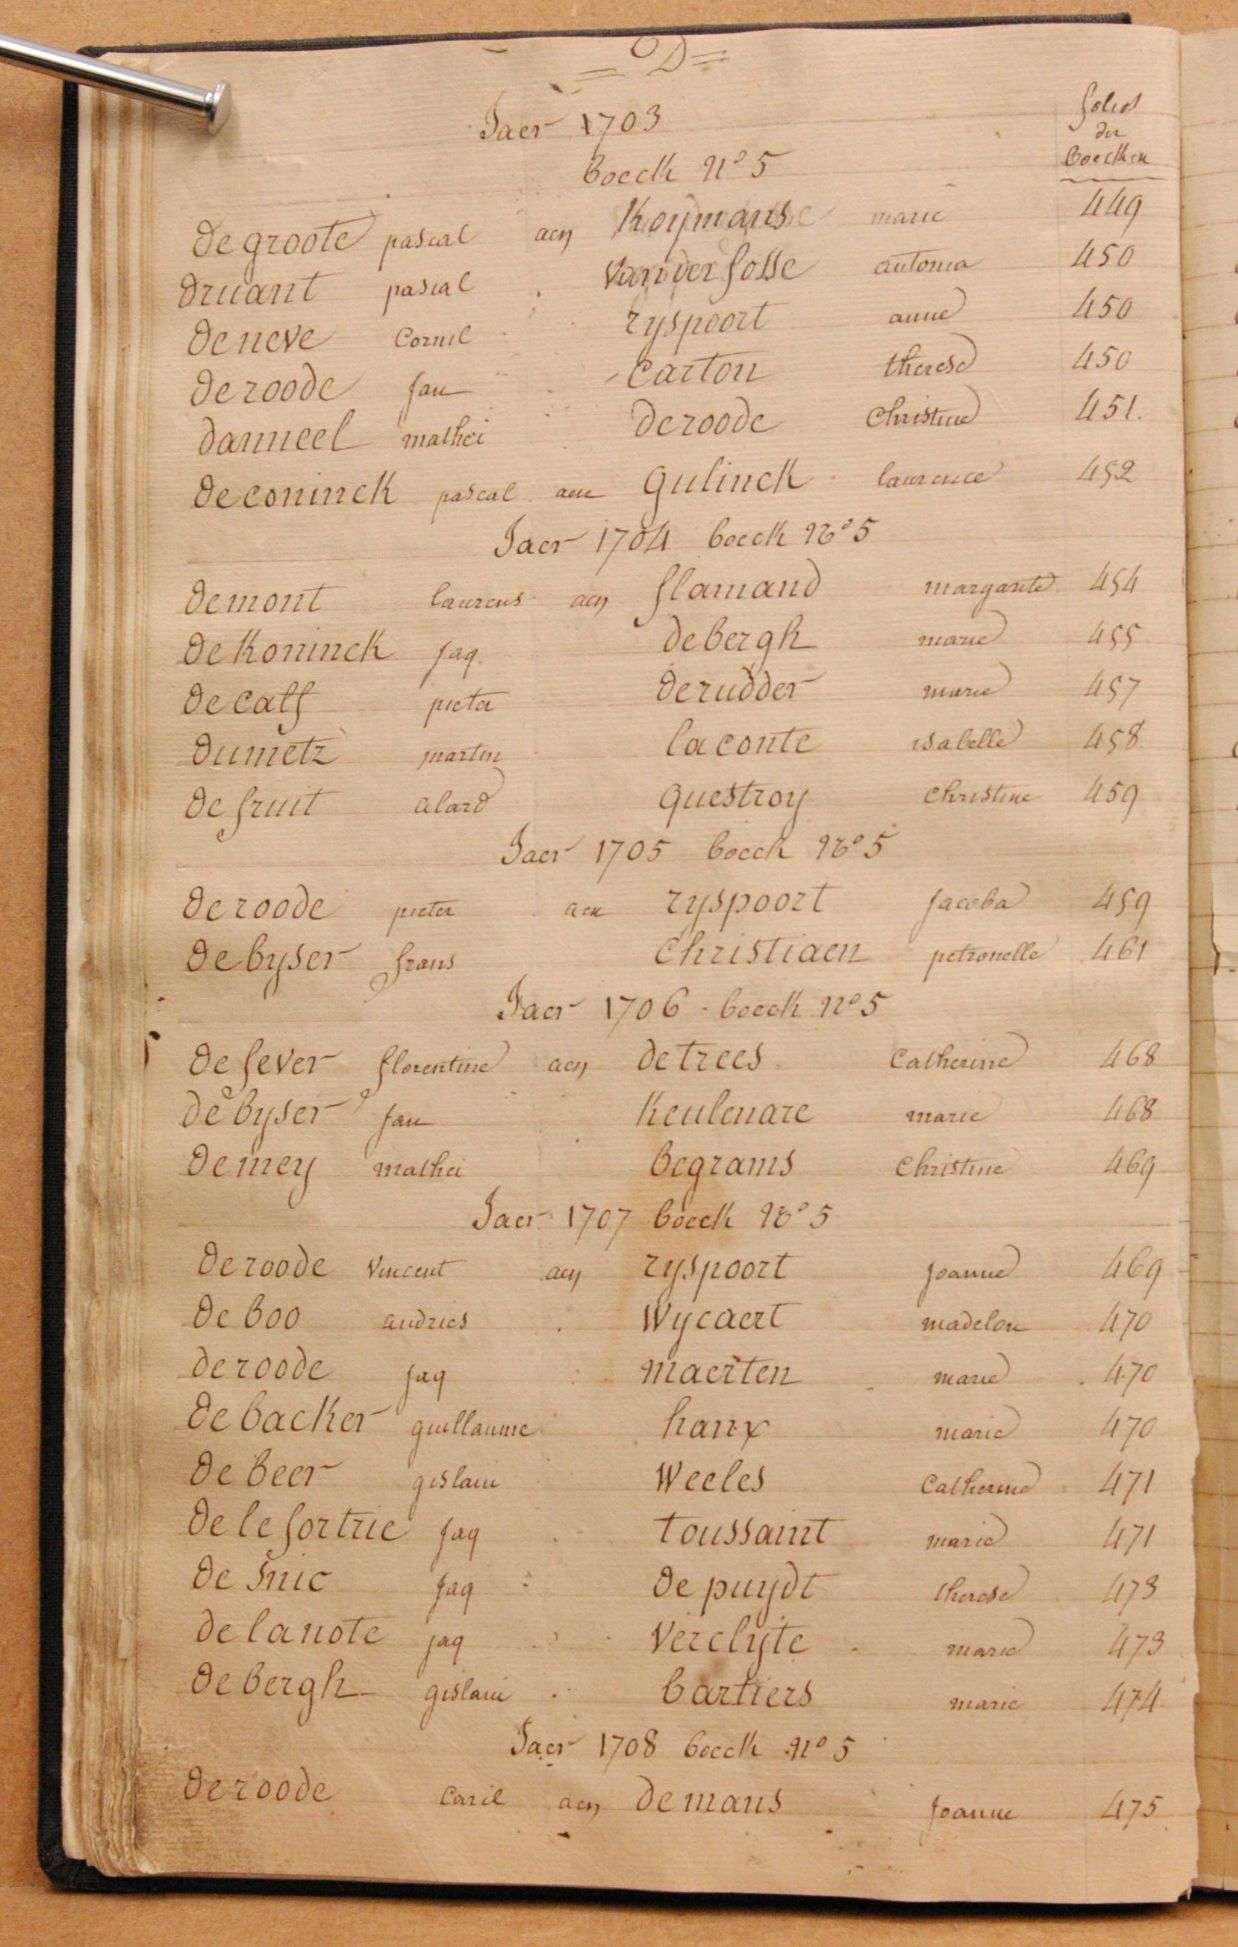 = D =
Jaer 1703
folios du boecken
boeck N° 5
De groote pascal aen Koymans marie 449
Druant pascal Van der fosse antonia 450
De neve Cornil ryspoort anne 450
De roode Jan Carton therese 450
danneel mathei de roode Christine 451.
De coninck pascal aen Gulinck laurence 452
Jaer 1704 boeck No 5
De mont laurens aen flamand margarite 454
De Koninck Jaq. de bergh marie 455
De calf pieter De rudder marie 457
Dumetz martin la conte isabelle 458
De fruit alard questroy christine 459
Jaer 1705 boeck No 5
De roode pieter aen ryspoort Jacoba 459
De byser frans Christiaen petronelle 461
Jaer 1706 - boeck N° 5
De fever florentine aen de trees Catherine 468
de byser Jan Keulenare marie 468
De mey mathei begrams Christine 469
Jaer 1707 boeck No 5
De roode Vincent aen ryspoort Joanne 469
De boo andries Wycaert madelon 470
de roode Jaq maerten marie 470
De backer guillaume hanx marie 470
De beer gislain Weeles Catherine 471
De le fortrie Jaq toussaint marie 471
De Snic Jaq De puydt therese 473
De lanote Jaq Verclyte marie 473
De bergh gislain bartiers marie 474
Jaer 1708 boeck N° 5
De roode Carel aen De mans Joanne 475